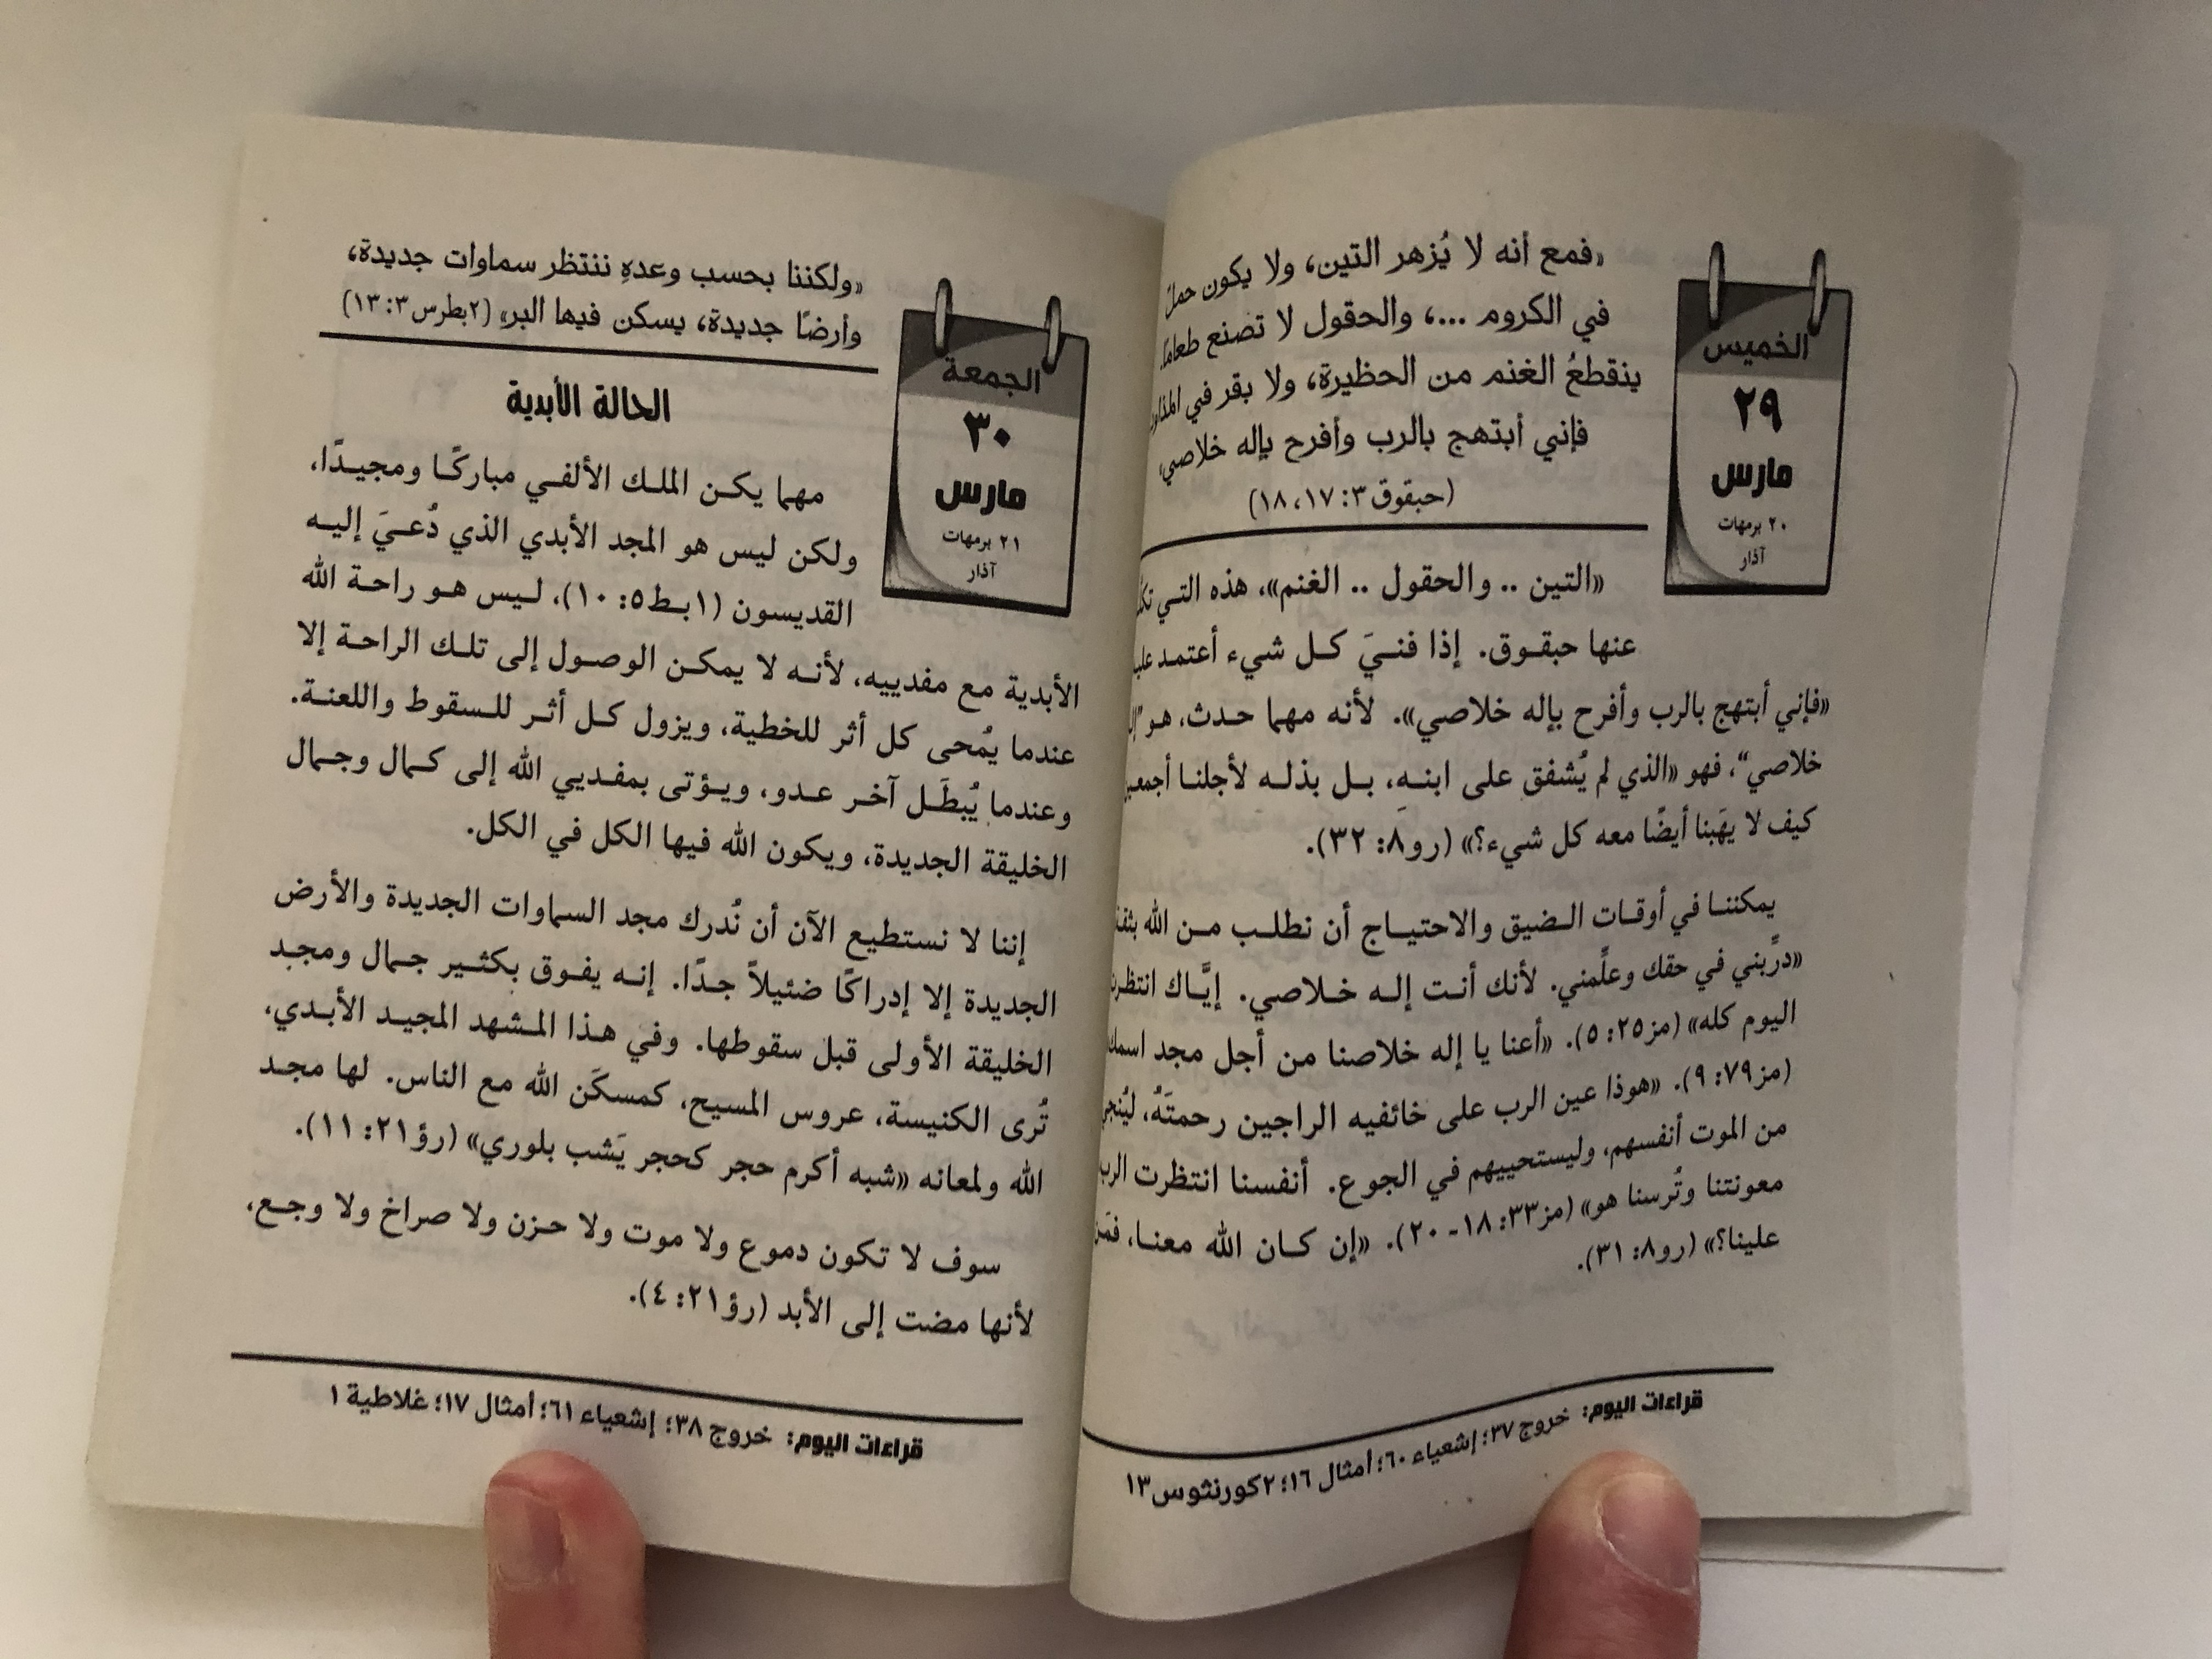 الخميس
٢٩
مارس
٢٠ برمهات
آذار
«فمع أنه لا يُزهر التين، ولا يكون حملٌ
في الكروم ...، والحقول لا تصنع طعامًا.
ينقطعُ الغنم من الحظيرة، ولا بقر في
فإني أبتهج بالرب وأفرح بإله خلاصي»
(حبقوق٣: ١٧، ١٨)
«التين .. والحقول .. الغنم»، هذه التـي
عنها حبقـوق. إذا فنـيَ كـل شيء أعتمـد
«فإني أبتهج بالرب وأفرح بإله خلاصي». لأنه مهما حـدث، هـو
خلاصي“، فهو «الذي لم يُشفق على ابنـهِ، بـل بذلـه لأجلنـا أجمعين
كيف لا يهَبنا أيضًا معه كل شيء؟» (رو٨: ٣٢).
يمكننـا في أوقـات الـضيق والاحتيـاج أن نطلـب مـن الله
«درِّبني في حقك وعلِّمني. لأنك أنـت إلـه خـلاصي. إيَّـاك
اليوم كله» (مز٢٥: ٥). «أعنا يا إله خلاصنا من أجل مجد
(مز٧٩: ٩). «هوذا عين الرب على خائفيه الراجين رحمتَهُ، ليُنجي
من الموت أنفسهم، وليستحييهم في الجوع. أنفسنا انتظرت الرب
معونتنا وتُرسنا هو» (مز٣٣: ١٨- ٢٠). «إن كـان الله معنـا، فمَن
علينا؟» (رو٨: ٣١).
قراءات اليوم: خروج ٣٧؛ إشعياء ٦٠؛ أمثال ١٦؛ ٢كورنثوس١٣
الجمعة
٣٠
مارس
٢١ برمهات
آذار
«ولكننا بحسب وعدهِ ننتظر سماوات جديدة،
وأرضًا جديدة، يسكن فيها البر» (٢بطرس٣: ١٣)
الحالة الأبدية
مهما يكـن الملـك الألفـي مباركًـا ومجيـدًا،
ولكن ليس هو المجد الأبدي الذي دُعـيَ إليـه
القديسون (١بـط٥: ١٠)، لـيس هـو راحـة الله
الأبدية مع مفدييه، لأنـه لا يمكـن الوصـول إلى تلـك الراحـة إلا
عندما يُمحى كل أثر للخطية، ويزول كـل أثـر للـسقوط واللعنـة.
وعندما يُبطَـل آخـر عـدو، ويـؤتى بمفـديي الله إلى كـمال وجـمال
الخليقة الجديدة، ويكون الله فيها الكل في الكل.
إننا لا نستطيع الآن أن نُدرك مجد السماوات الجديدة والأرض
الجديدة إلا إدراكًا ضئيلاً جـدًا. إنـه يفـوق بكثـير جـمال ومجـد
الخليقة الأولى قبل سقوطها. وفي هـذا المـشهد المجيـد الأبـدي،
تُرى الكنيسة، عروس المسيح، كمسكَن الله مع الناس. لها مجـد
الله ولمعانه «شبه أكرم حجر كحجر يَشب بلوري» (رؤ٢١: ١١).
سوف لا تكون دموع ولا موت ولا حـزن ولا صراخ ولا وجـع،
لأنها مضت إلى الأبد (رؤ٢١: ٤).
قراءات اليوم: خروج ٣٨؛ إشعياء ٦١؛ أمثال ١٧؛ غلاطية ١